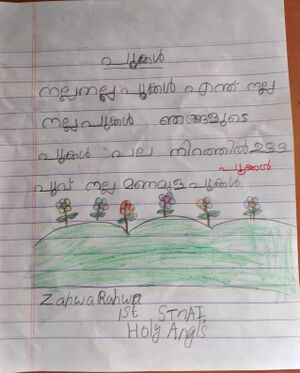 പൂക്കൾ
നല്ലനല്ല പൂക്കൾ എന്ത് നല്ല
നല്ല പൂക്കൾ ഞങ്ങളുടെ
പൂക്കൾ പല നിറത്തിൽ ഉള്ള
പൂക്കൾ
പൂവ് നല്ല മണമുള പൂക്കൾ
Zahwa Rahwa
1st STnAI,
Holy Angls